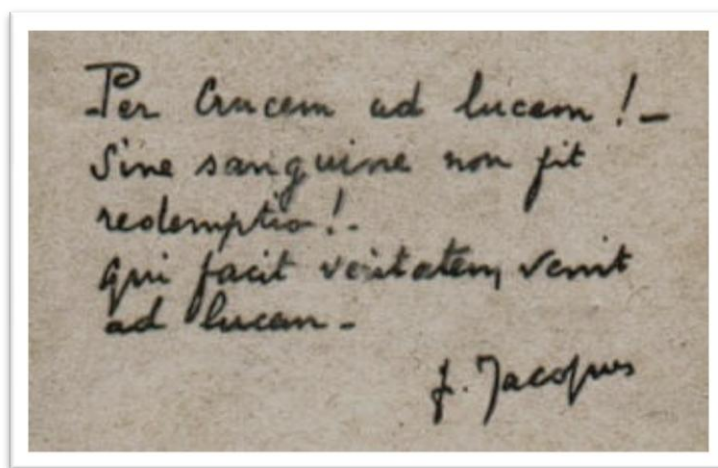 Per Crucem ad lucem ! -
Sine sanguine non fit
redemptio ! -
qui facit veritatem, venit
ad lucem -
f. Jacques